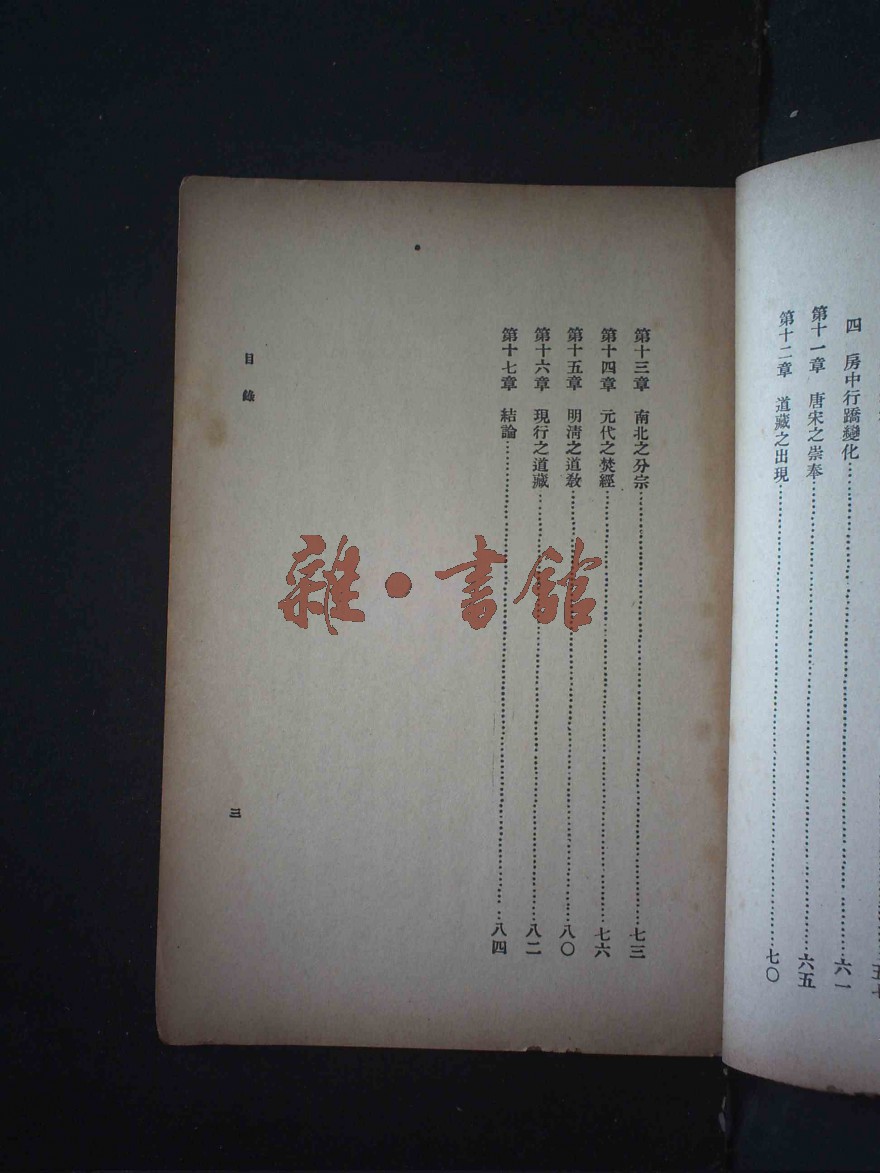 四　房中行蹻變化……六一
第十一章　唐宋之崇奉……六五
第十二章　道藏之出現……七〇
第十三章　南北之分宗……七三
第十四章　元代之焚經……七六
第十五章　明清之道教……八〇
第十六章　現行之道藏……八二
第十七章　結論……八四
目錄
三
雜·書館